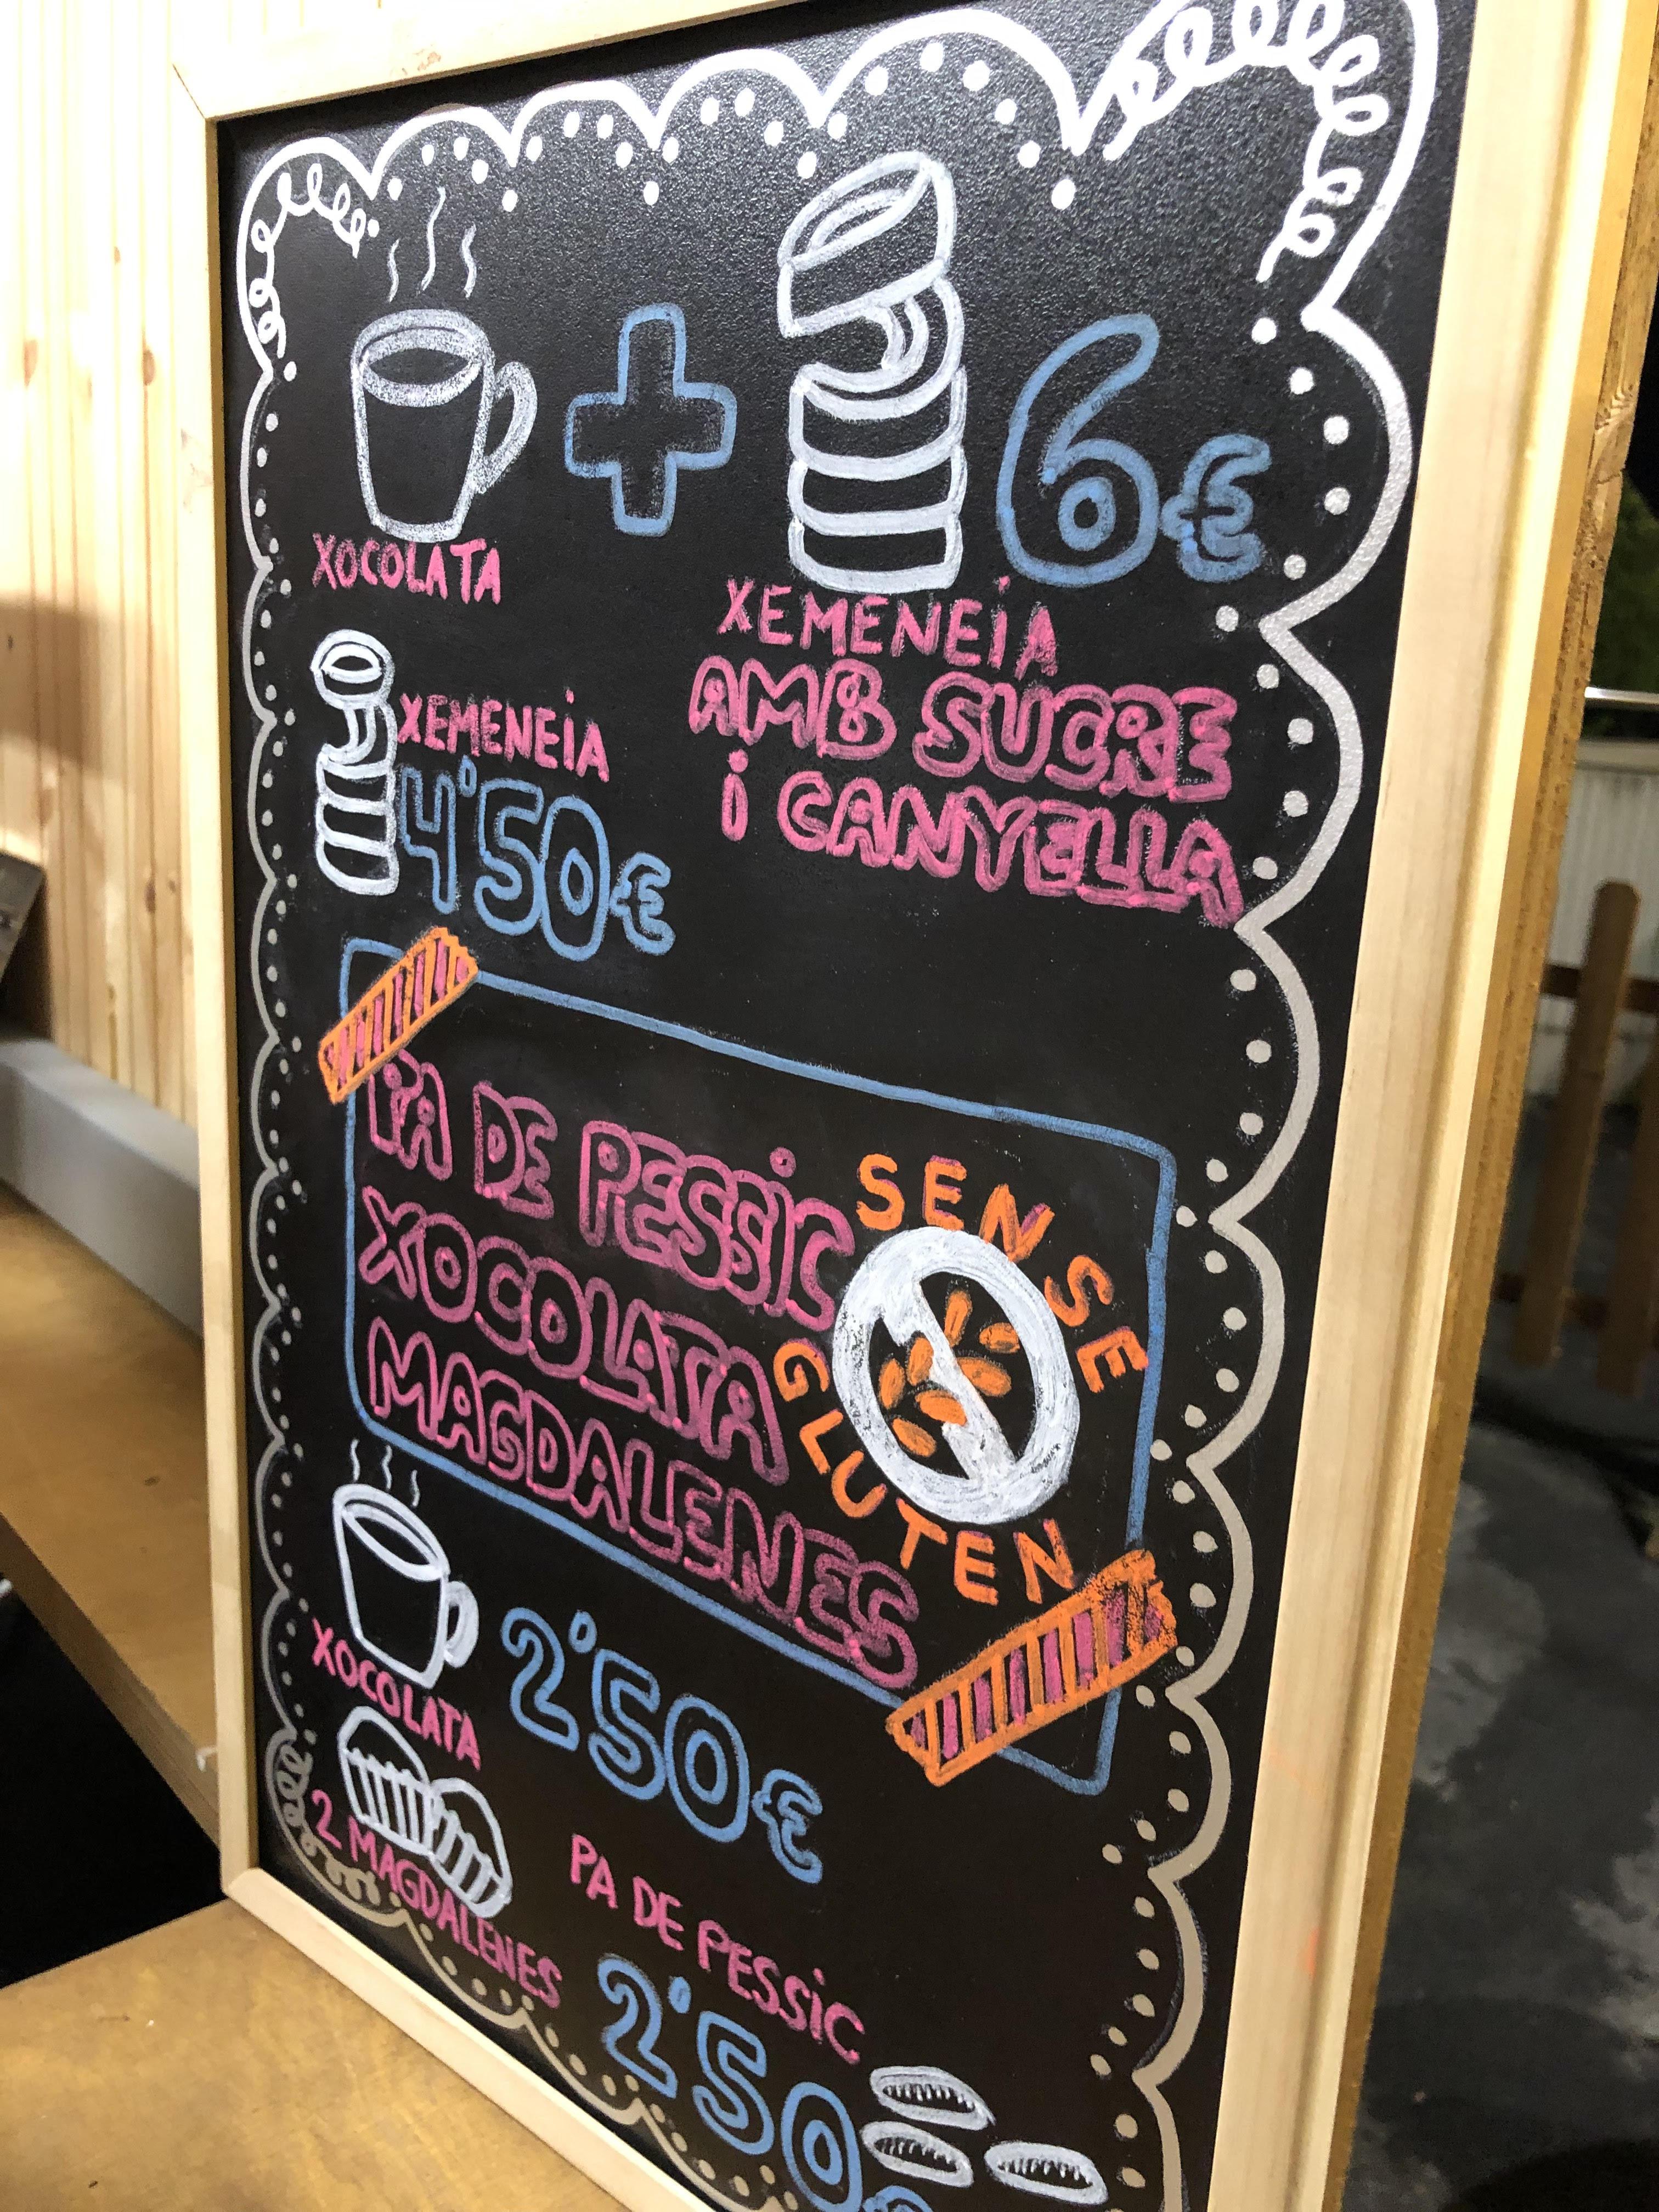 + 6€
XOCOLATA
XEMENEiA
AMB SUCRE
i CANYELLA
XEMENEiA
4'50€
PA DE PESSiC
XOCOLATA
MAGDALENES
SENSE
GLUTEN
XOCOLATA
2'50€
2 MAGDALENES
PA DE PESSiC
2'50€